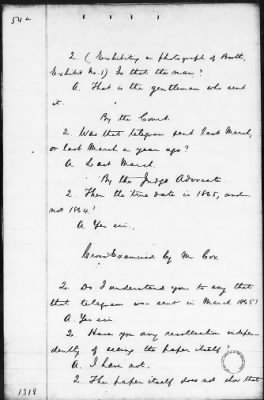 54a
Q. (Exhibiting a photograph of Booth,
Exhibit No. 1) Is that the man?
A. That is the gentleman who sent
it.
By the Court.
Q. Was that telegram sent last March,
or last March a year ago?
A. Last March.
By the Judge Advocate.
Q. Then the true date is 1865, and
not 1864?
A. Yes sir.
Cross Examined by Mr Cox
Q. Do I understand you to say that
that telegram was sent in March 1865?
A. Yes sir.
Q. Have you any recollection indepen-
dently of seeing the paper itself?
A. I have not.
Q. The paper itself does not show that
1318